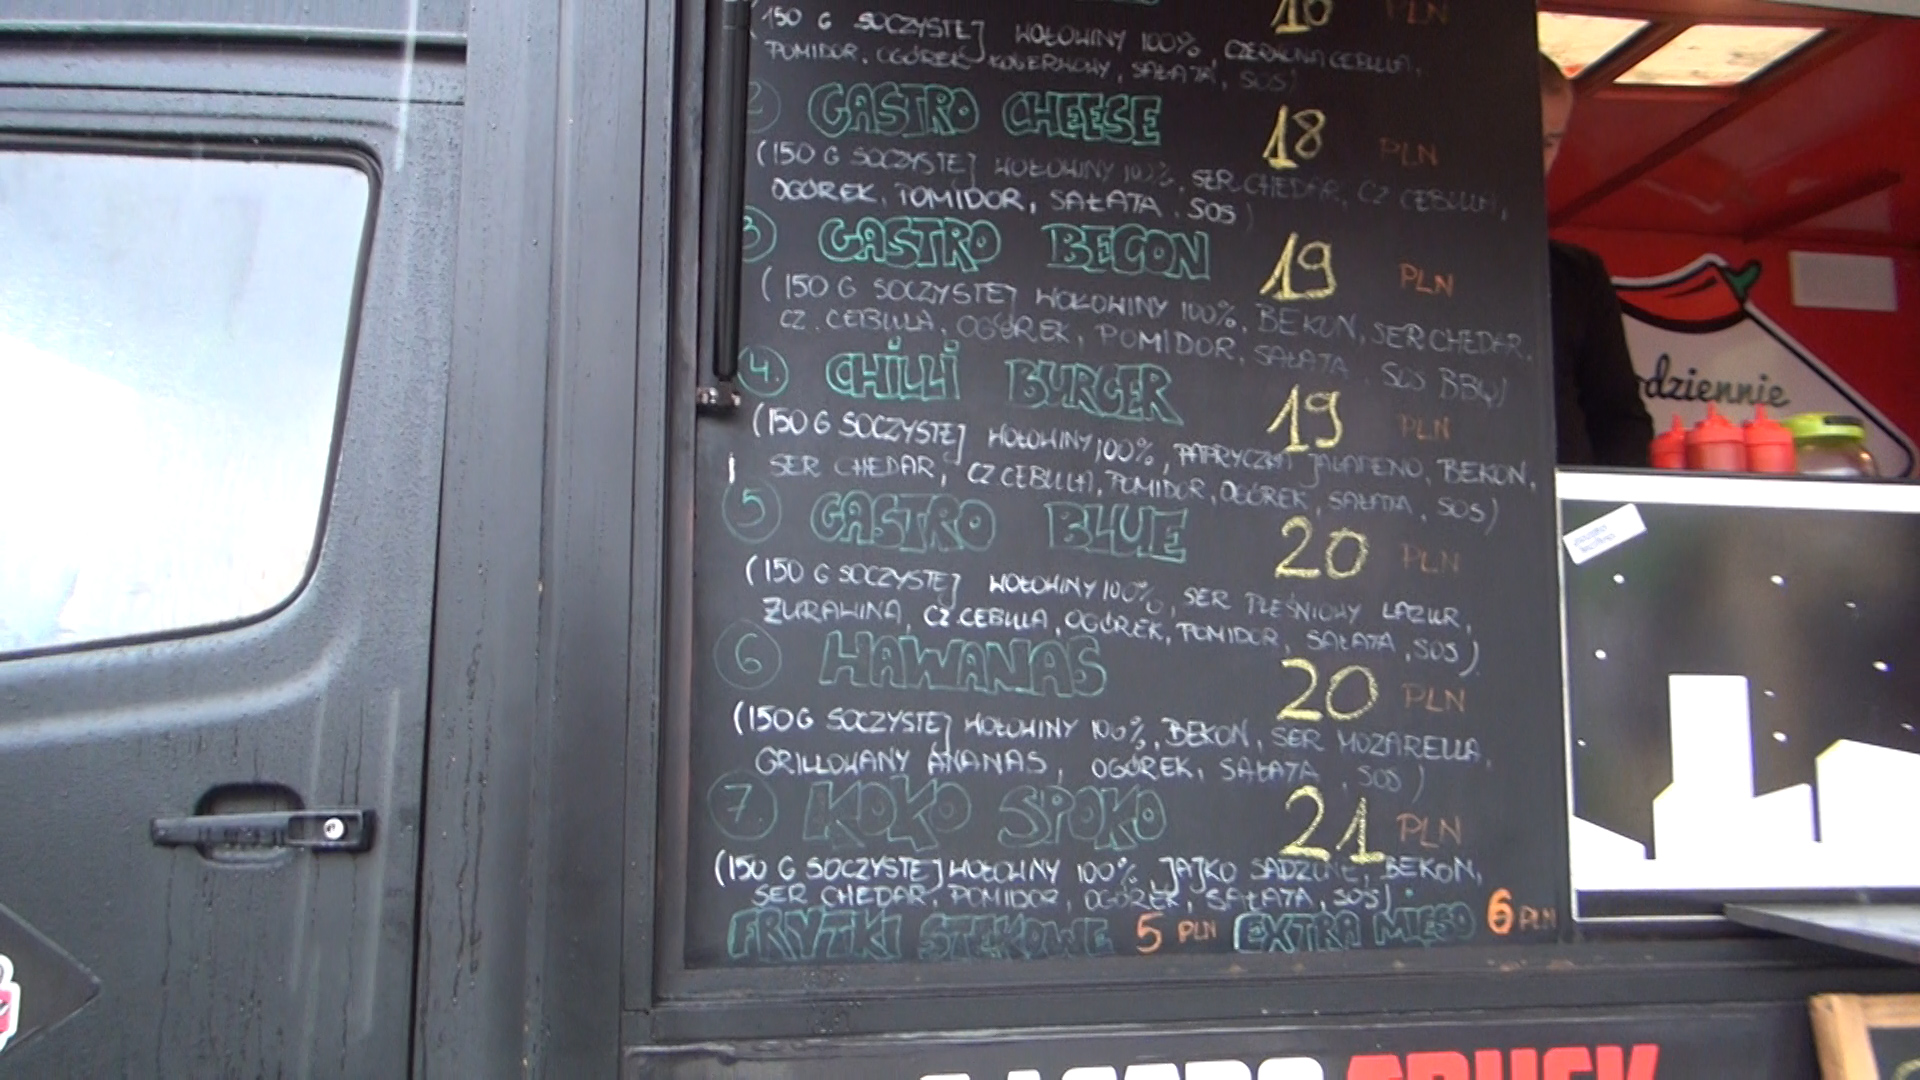 PLN
(150 G SOCZYSTEJ WOŁOWINY 100%, CZERWONA CEBULA,
POMIDOR, OGÓREK KONSERWOWY, SAŁATA, SOS)
2 GASTRO CHEESE 18 PLN
(150 G SOCZYSTEJ WOŁOWINY 100%, SER CHEDAR, CZ CEBULA,
OGÓREK, POMIDOR, SAŁATA, SOS)
3 GASTRO BECON 19 PLN
(150 G SOCZYSTEJ WOŁOWINY 100%, BEKON, SER CHEDAR,
CZ. CEBULA, OGÓREK, POMIDOR, SAŁATA, SOS BBQ)
4. CHILLI BURGER 19 PLN
(150 G SOCZYSTEJ WOŁOWINY 100%, PAPRYCZKI JALAPENO, BEKON,
SER CHEDAR, CZ CEBULA, POMIDOR, OGÓREK, SAŁATA, SOS)
5 GASTRO BLUE 20 PLN
(150 G SOCZYSTEJ WOŁOWINY 100%, SER PLEŚNIOWY LAZUR,
ŻURAWINA, CZ.CEBULA, OGÓREK, POMIDOR, SAŁATA, SOS)
6 HAWANAS 20 PLN
(150G SOCZYSTEJ WOŁOWINY 100%, BEKON, SER MOZARELLA,
GRILLOWANY ANANAS, OGÓREK, SAŁATA, SOS)
7. KOKO SPOKO 21 PLN
(150 G SOCZYSTEJ WOŁOWINY 100%, JAJKO SADZONE, BEKON,
SER CHEDAR, POMIDOR, OGÓREK, SAŁATA, SOS)
FRYTKI STEKOWE 5 PLN EXTRA MIĘSO 6 PLN
dziennie